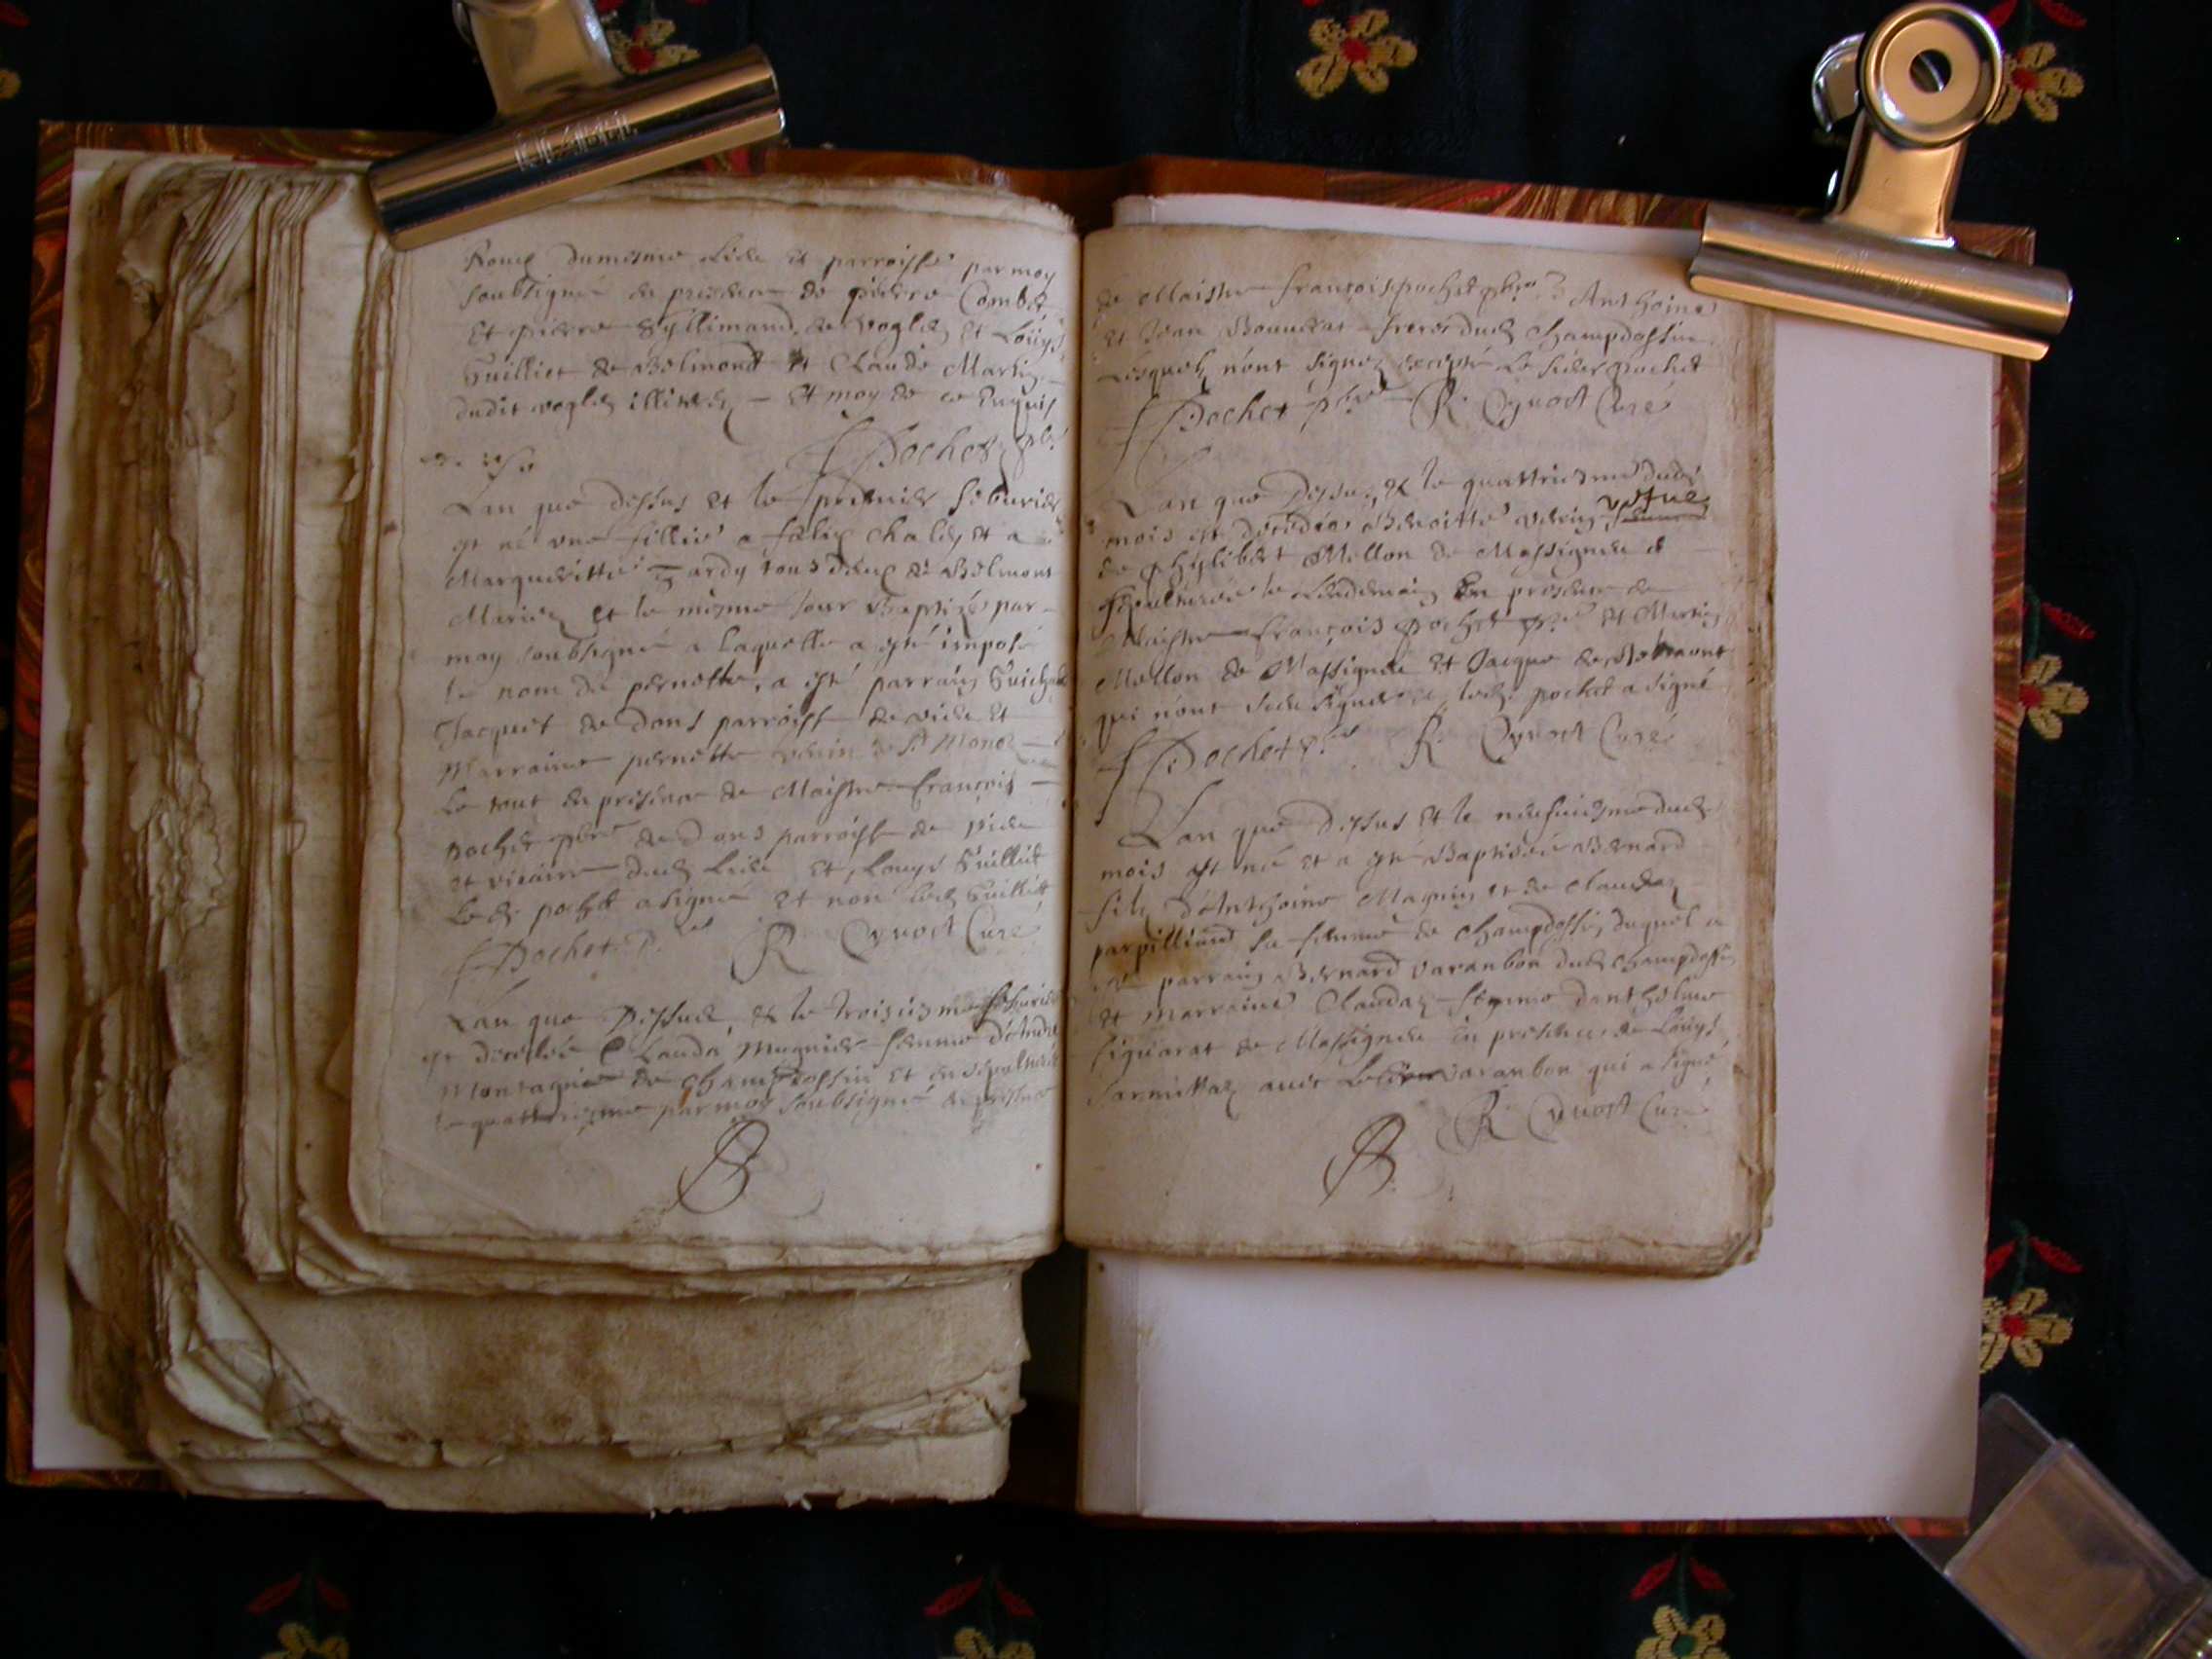 Roux du mesme Lieu et parroisse par moy
soubsigné en presence de pierre Combet
Et pierre Guillimand de voglen et Loüys
Guilliet de Belmont et Claude Martin
dudit voglen illiterez Et moy de ce Requis
f Pochet pbr
Lan que dessus et le premier feburier
est né une fillie a felix Chaley et a
Margueritte Tardy tous deux de Belmont
Mariez et le mesme Jour Baptizée par
moy soubsigné a laquelle a esté imposé
le nom de pernette, a esté parrain Guichard
Jacquet de dons parroisse de vieu et
Marraine pernette
le tout en presence de Maistre françois
pochet pbre de Dons parroisse de vieu
et vicaire dud Lieu Et Louys Guilliet
Led pochet a signé et non led Guilliet
f Pochet R Cynod Curé
Lan que Dessus, & le troisiesme feburier
est decedée Clauda Mugnier femme d'André
Montagnie de Champdossin et ensepulturée
le quattriesme par moy soubsigné en presence
de Maistre françois pochet pbre Anthoine
et Jean Bonnerat freres dud Champdossin
Lesquels n'ont signez excepté Le sieur pochet
f Pochet pbre R. Cynod Curé
Lan que Dessus, & le quattriesme dudi
mois est decedée Benoitte vefue
de phylibert Mellon de Massignieu &
sepulturée le Lendemain En presence de
Maistre françois Pochet pbre et Martin
Mellon de Massignieu et Jacque de Belmont
qui n'ont sceu signer led pochet a signé
f Pochet pbre R Cynod Curé
Lan que dessus et le neufuiesme dud
mois est né et a esté Baptisée Bernard
filz d'Anthoine Magnin et de claudaz
parpilliand sa femme de Champdossin, duquel a
esté parrain Bernard varanbon dud champdossin
et marraine Claudaz femme danthelme
figuarat de Massignieu en presence de Loüys
avec Le sieur varanbon qui a signé
R Cynod Curé